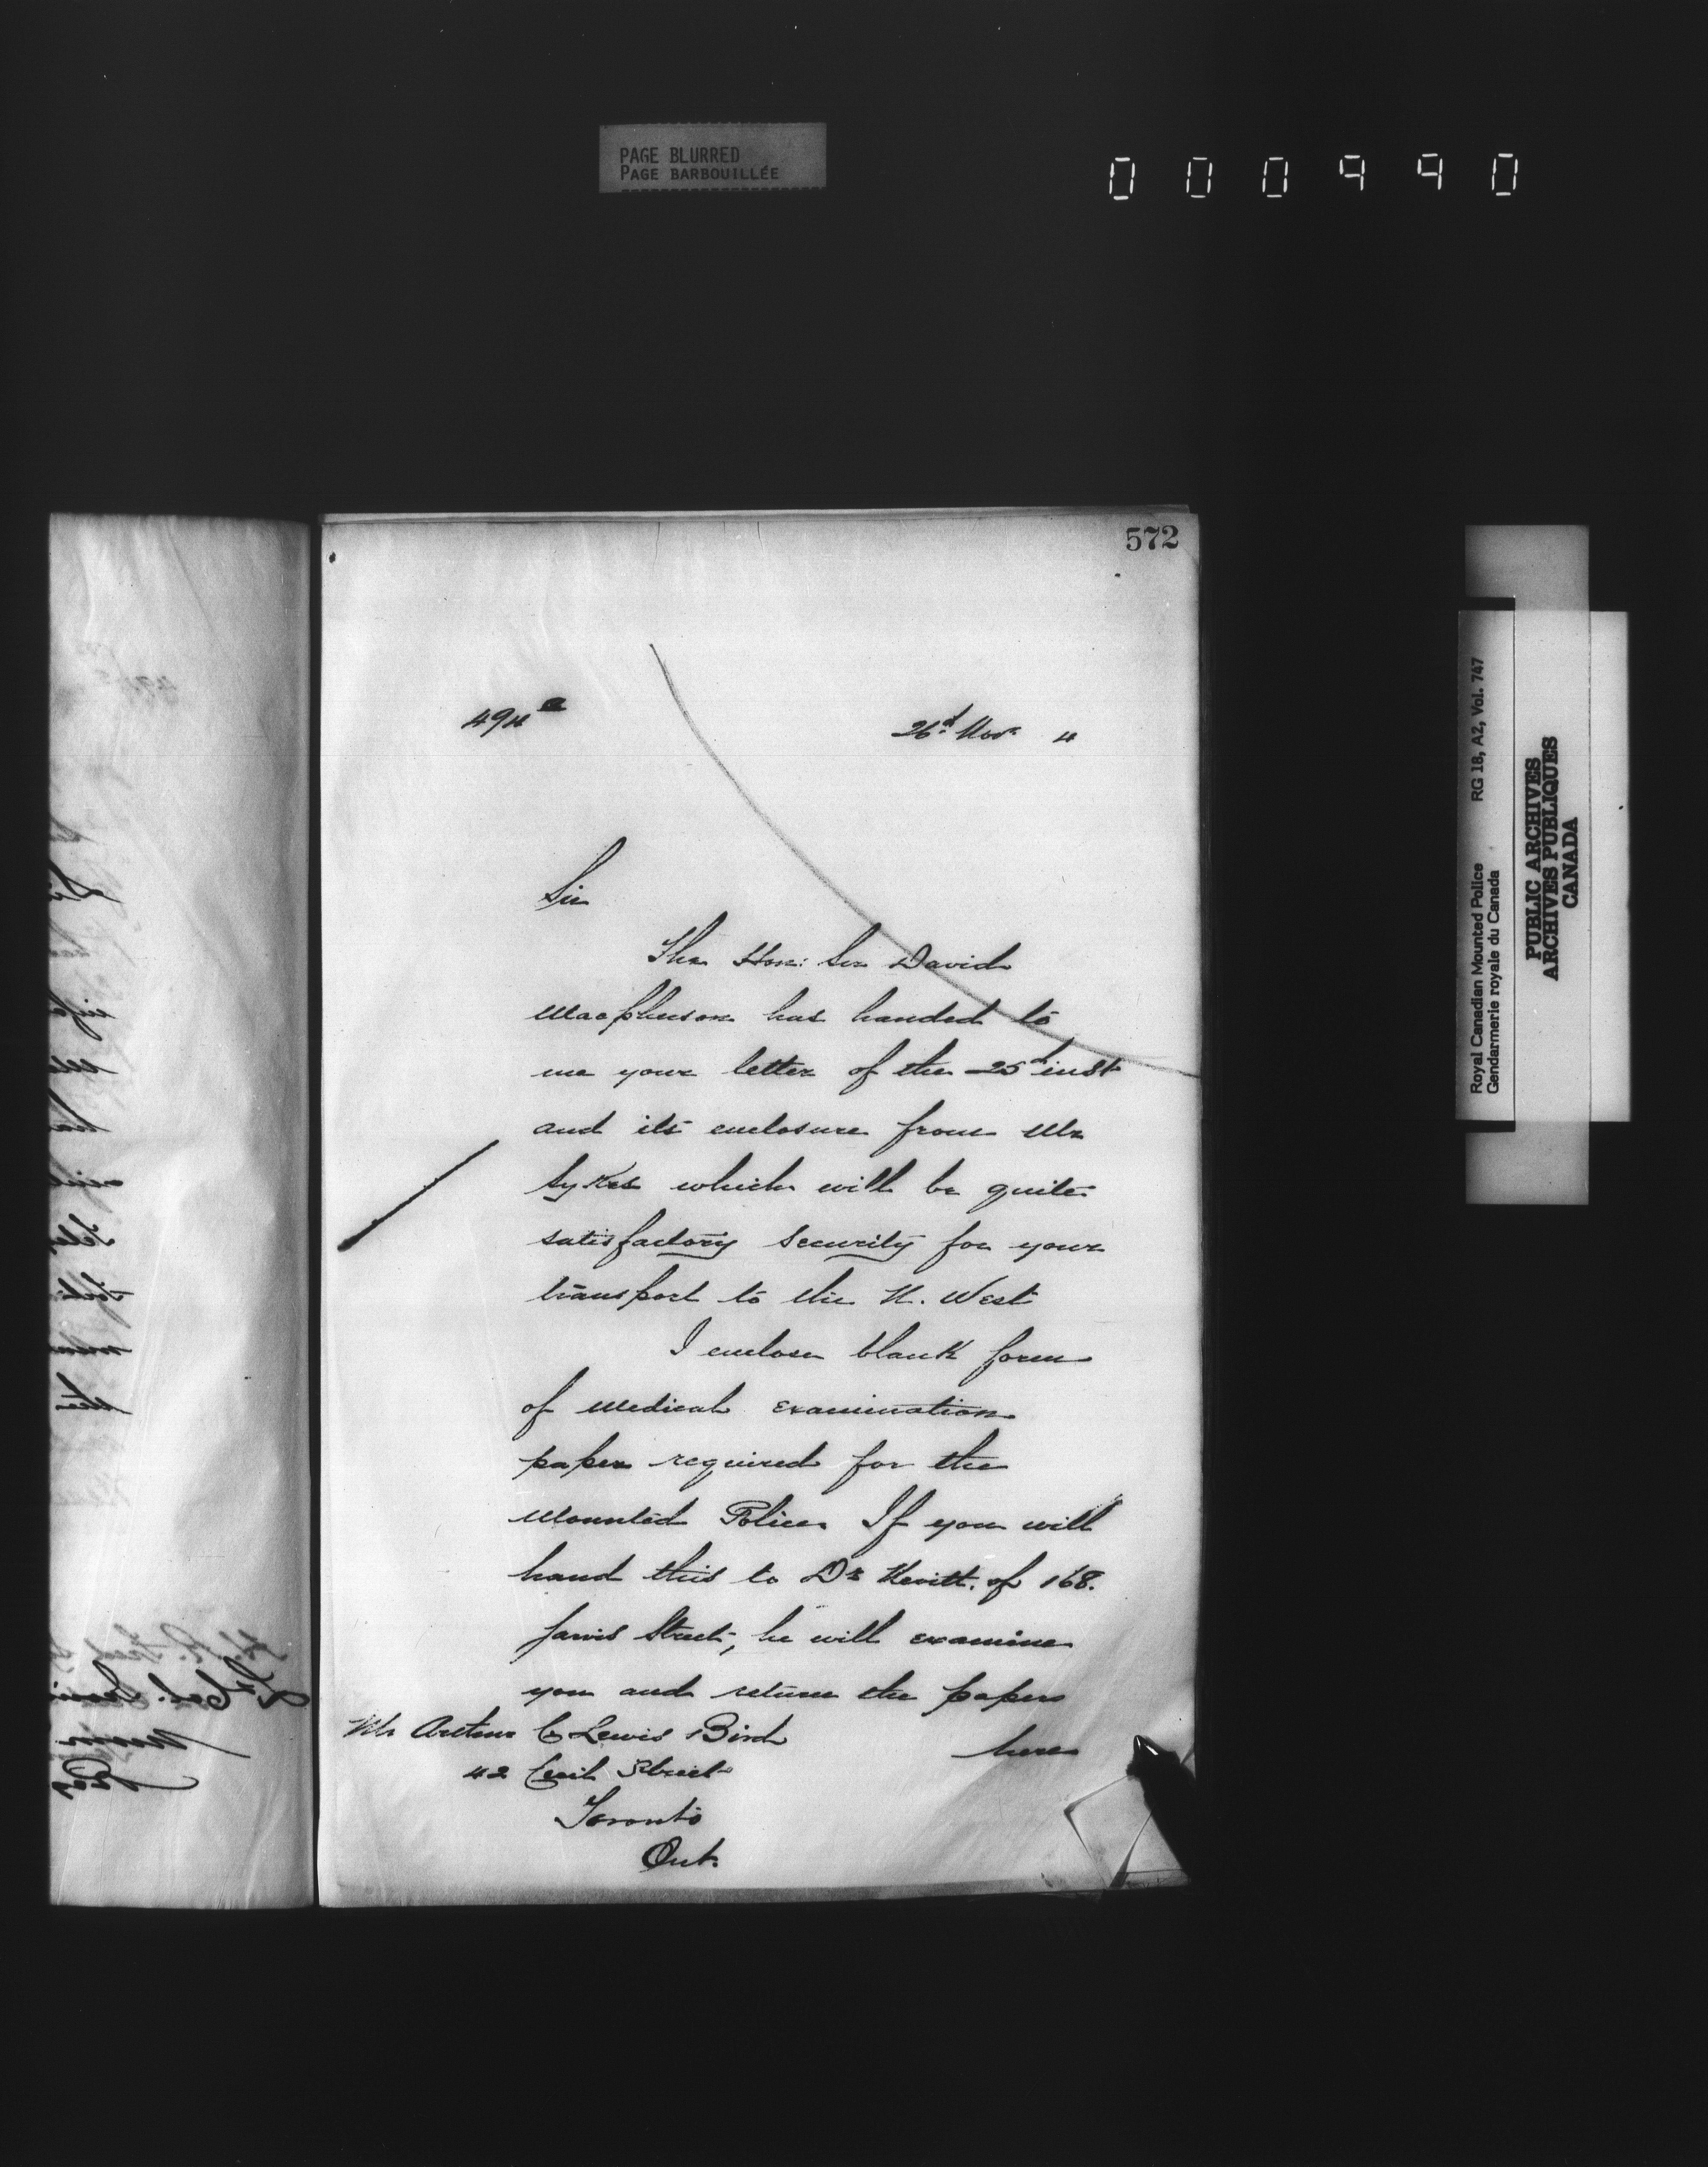 PAGE BLURRED
PAGE BARBOUILLÉE
000990
572
494 a
26d. Nov. 4
Sir
The Hon: Sir David
Macpherson has handed to
me your letter of the 25th inst
and its enclosure from Mr
Sykes which will be quite
satisfactory security for your
transport to the N. West
I enclose blank form
of medical examination
paper required for the
Mounted Police. If you will
hand this to Dr Kevitt. of 168.
Jarvis Street, he will examine
you and return the papers
here
Mr Arthur C Lewis Birch
42 Cecil Street
Toronto
Ont.
Royal Canadian Mounted Police RG 18, A2, Vol. 747
Gendarmerie royale du Canada
PUBLIC ARCHIVES
ARCHIVES PUBLIQUES
CANADA